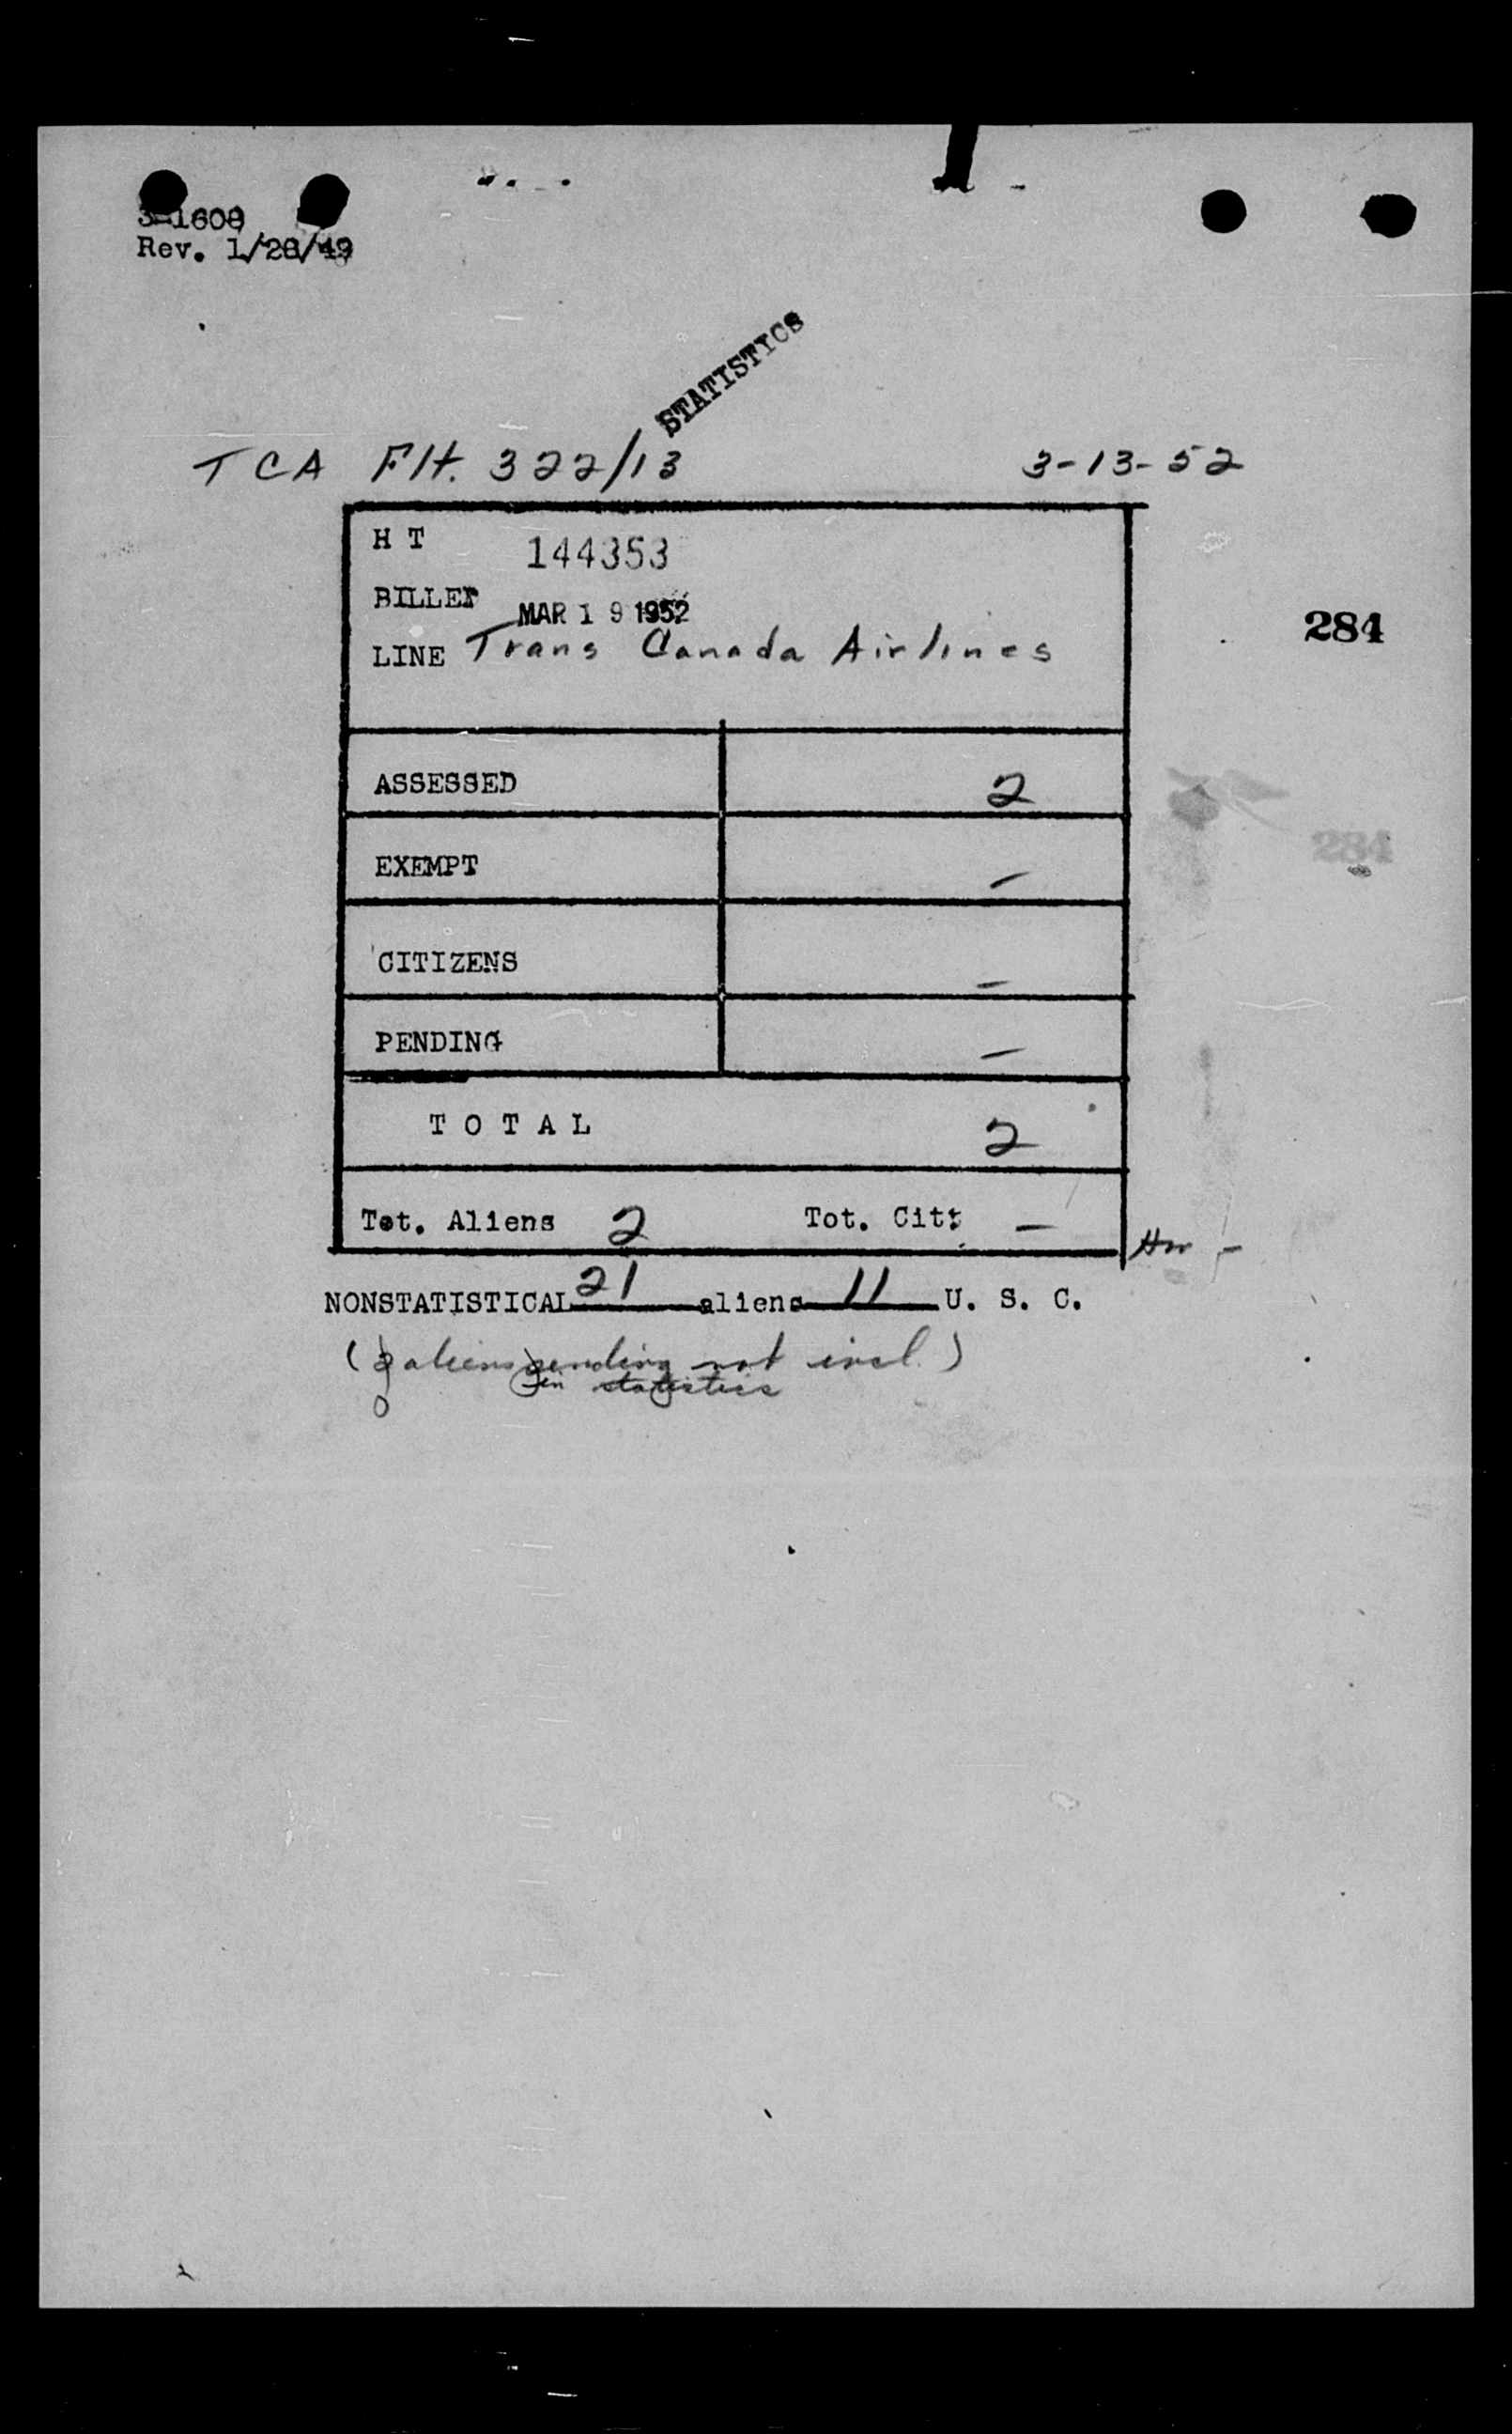 3-1608
Rev. 1/28/49
STATISTICS
TCA Flt. 322/13 3-13-52
H T 144353
BILLED MAR 19 1952
284
LINE Trans Canada Airlines
ASSESSED 2
284
EXEMPT –
CITIZENS –
PENDING –
TOTAL 2
Tot. Aliens 2 Tot. Cit: –
NONSTATISTICAL 21 aliens 11 U. S. C.
( aliens pending not incl.)
in statistics